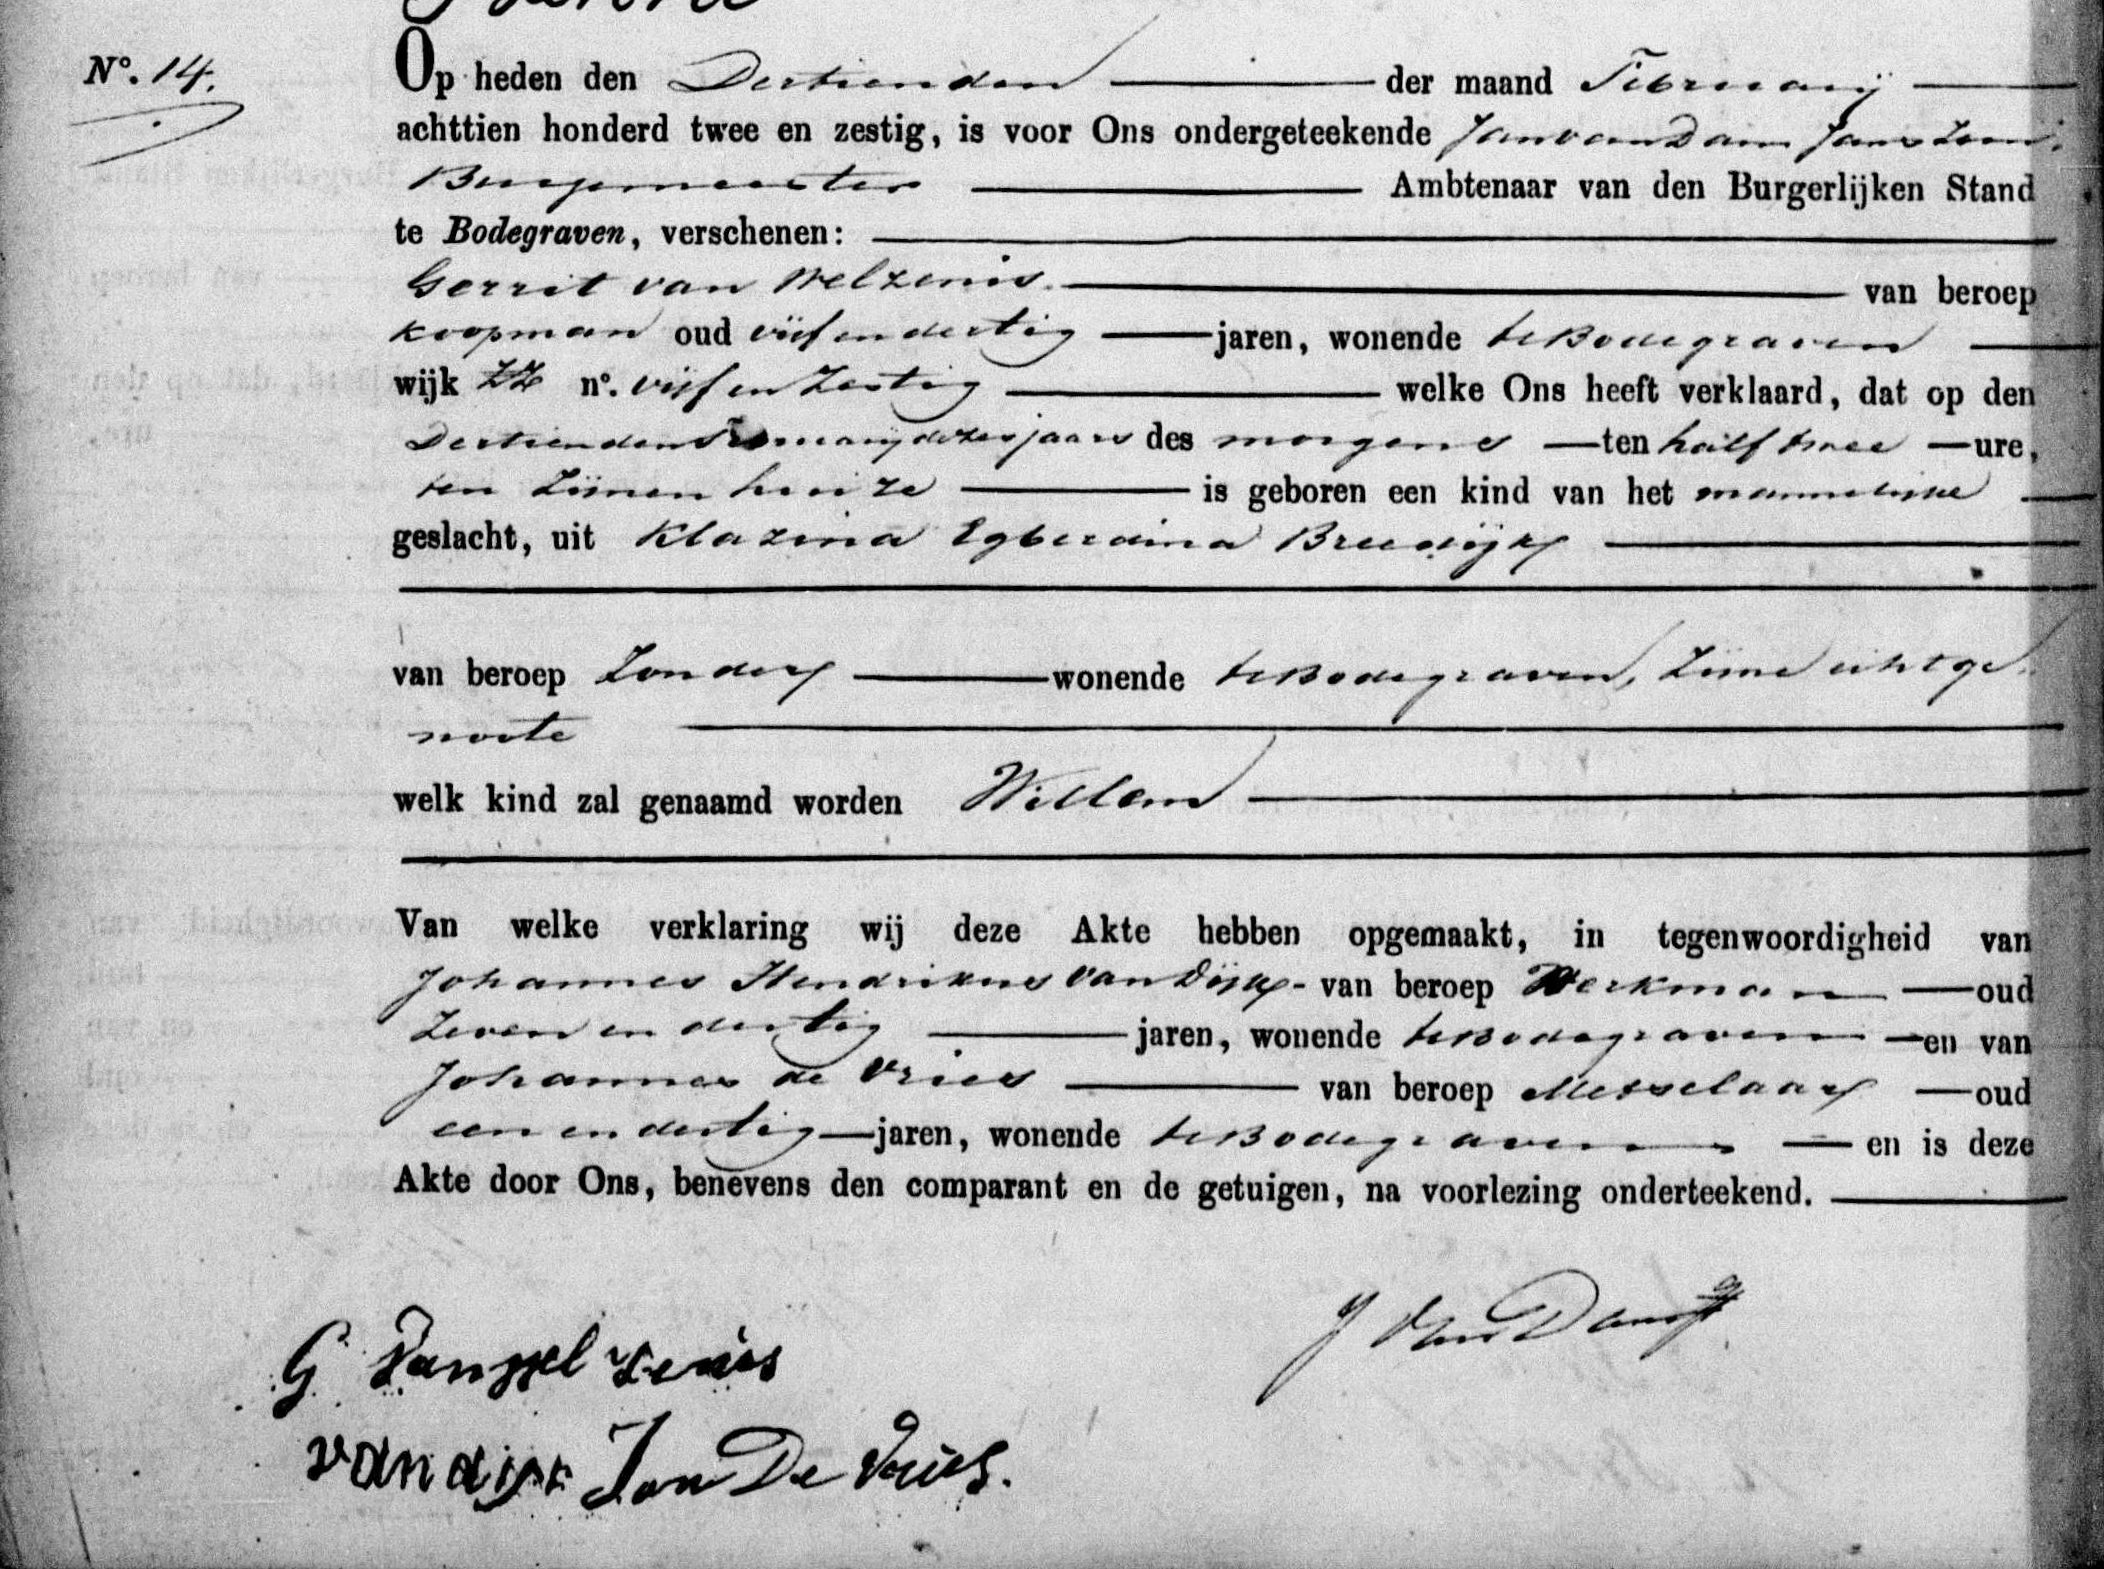 Nº. 14.
Op heden den Dertienden der maand Februarij
achttien honderd twee en zestig, is voor Ons ondergeteekende Jan van Dam Janszoon.
Burgemeester Ambtenaar van den Burgerlijken Stand
te Bodegraven, verschenen:
Gerrit van Welzenis. van beroep
koopman oud vijf en dertig jaren, wonende te Bodegraven
wijk ZZ nº. vijf en zestig welke Ons heeft verklaard, dat op den
Dertienden Februarij dezes jaars des morgens ten half twee ure,
ten zijnen huize is geboren een kind van het mannelijke
geslacht, uit Klazina Egberdina Breedijk
van beroep zonder wonende te Bodegraven, zijne echtge
noote
welk kind zal genaamd worden Willem
Van welke verklaring wij deze Akte hebben opgemaakt, in tegenwoordigheid van
Johannes Hendrikus van Dijk van beroep Werkman oud
zeven en dertig jaren, wonende te Bodegraven en van
Johannes de Vries van beroep Metselaar oud
een en dertig jaren, wonende te Bodegraven en is deze
Akte door Ons, benevens den comparant en de getuigen, na voorlezing onderteekend.
J Van Dam
G van wel zenis
van dijk Jon De Vries.